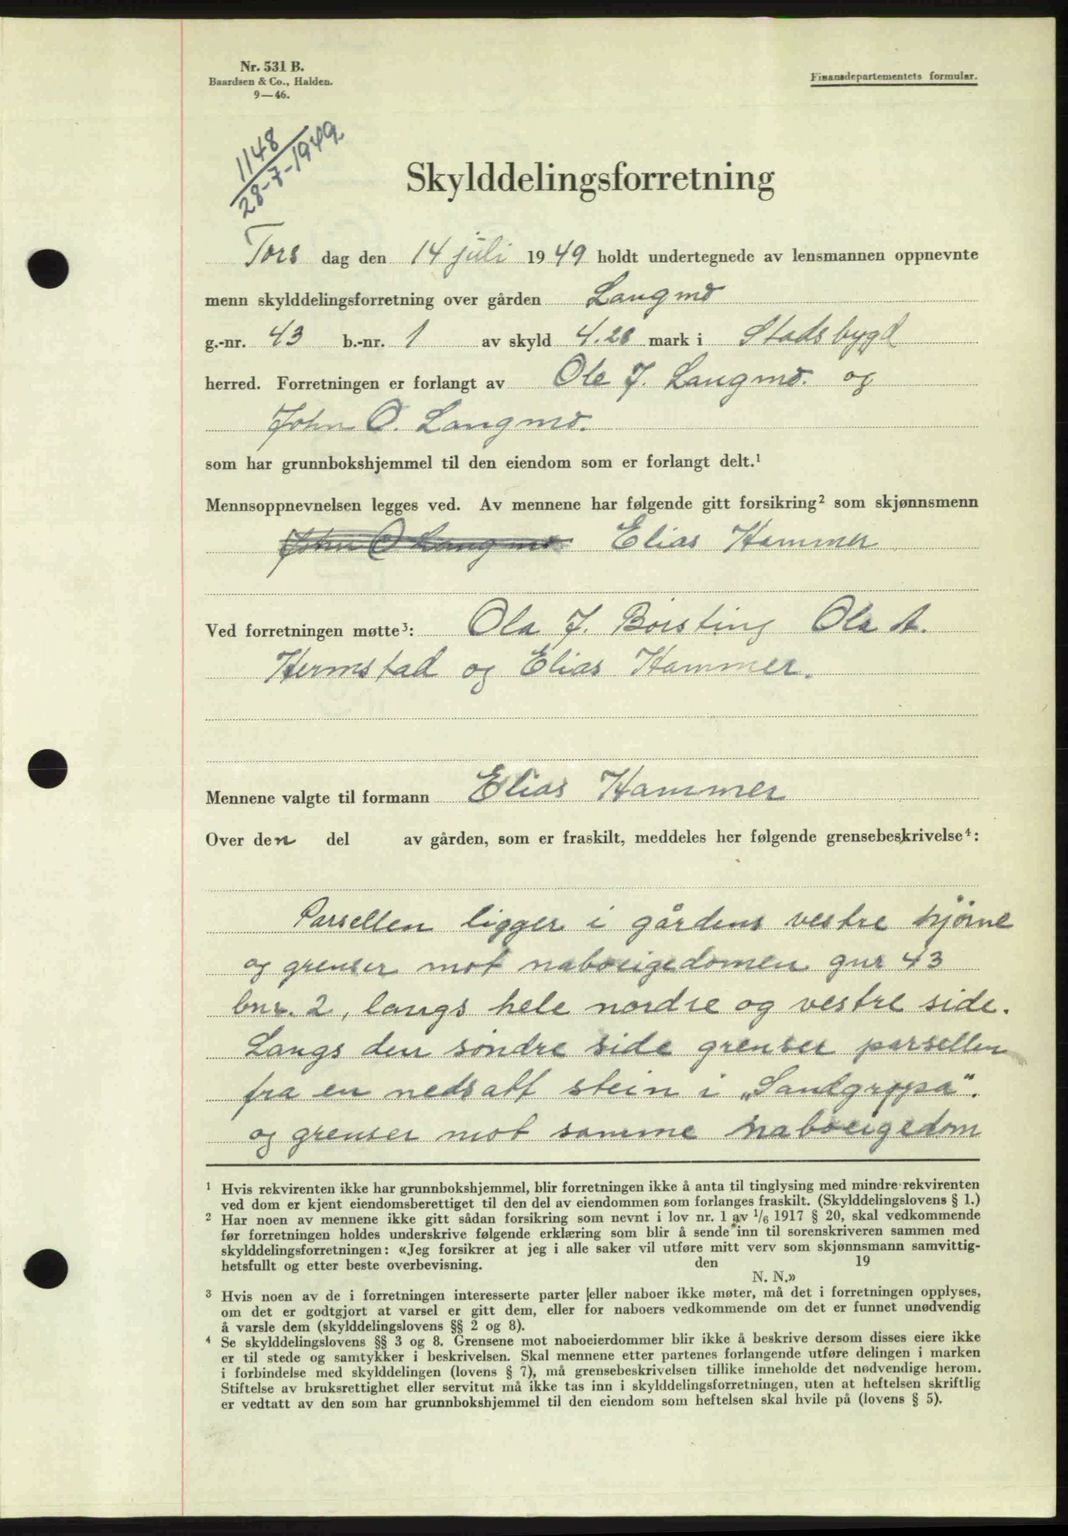 Nr. 531 B.
Baardsen & Co., Halden.
9—46.
Finansdepartementets formular.
1148
28-7-1949
Skylddelingsforretning
Tors dag den 14 juli 1949 holdt undertegnede av lensmannen oppnevnte
menn skylddelingsforretning over gården Langmo
g.-nr. 43 b.-nr. 1 av skyld 4.28 mark i Stadsbygd
herred. Forretningen er forlangt av Ole J. Langmo. og
John O. Langmo.
som har grunnbokshjemmel til den eiendom som er forlangt delt.¹
Mennsoppnevnelsen legges ved. Av mennene har følgende gitt forsikring² som skjønnsmenn
John O Langmo Elias Hammer
Ved forretningen møtte³: Ola J. Børsting Ola A.
Hermstad og Elias Hammer.
Mennene valgte til formann Elias Hammer
Over den del av gården, som er fraskilt, meddeles her følgende grensebeskrivelse⁴:
Parsellen ligger i gårdens vestre hjørne
og grenser mot naboeigedomen gnr 43
bnr. 2, langs hele nordre og vestre side.
Langs den søndre side grenser parsellen
fra en nedsatt stein i „Sandgropa".
og grenser mot samme naboeigedom
¹ Hvis rekvirenten ikke har grunnbokshjemmel, blir forretningen ikke å anta til tinglysing med mindre rekvirenten
ved dom er kjent eiendomsberettiget til den del av eiendommen som forlanges fraskilt. (Skylddelingslovens § 1.)
² Har noen av mennene ikke gitt sådan forsikring som nevnt i lov nr. 1 av 1/6 1917 § 20, skal vedkommende
før forretningen holdes underskrive følgende erklæring som blir å sende inn til sorenskriveren sammen med
skylddelingsforretningen: «Jeg forsikrer at jeg i alle saker vil utføre mitt verv som skjønnsmann samvittig-
hetsfullt og etter beste overbevisning. den 19
N. N.»
³ Hvis noen av de i forretningen interesserte parter eller naboer ikke møter, må det i forretningen opplyses,
om det er godtgjort at varsel er gitt dem, eller for naboers vedkommende om det er funnet unødvendig
å varsle dem (skylddelingslovens §§ 2 og 8).
⁴ Se skylddelingslovens §§ 3 og 8. Grensene mot naboeierdommer blir ikke å beskrive dersom disses eiere ikke
er til stede og samtykker i beskrivelsen. Skal mennene etter partenes forlangende utføre delingen i marken
i forbindelse med skylddelingen (lovens § 7), må grensebeskrivelsen tillike inneholde det nødvendige herom.
Stiftelse av bruksrettighet eller servitut må ikke tas inn i skylddelingsforretningen, uten at heftelsen skriftlig
er vedtatt av den som har grunnbokshjemmel til den eiendom som heftelsen skal hvile på (lovens § 5).